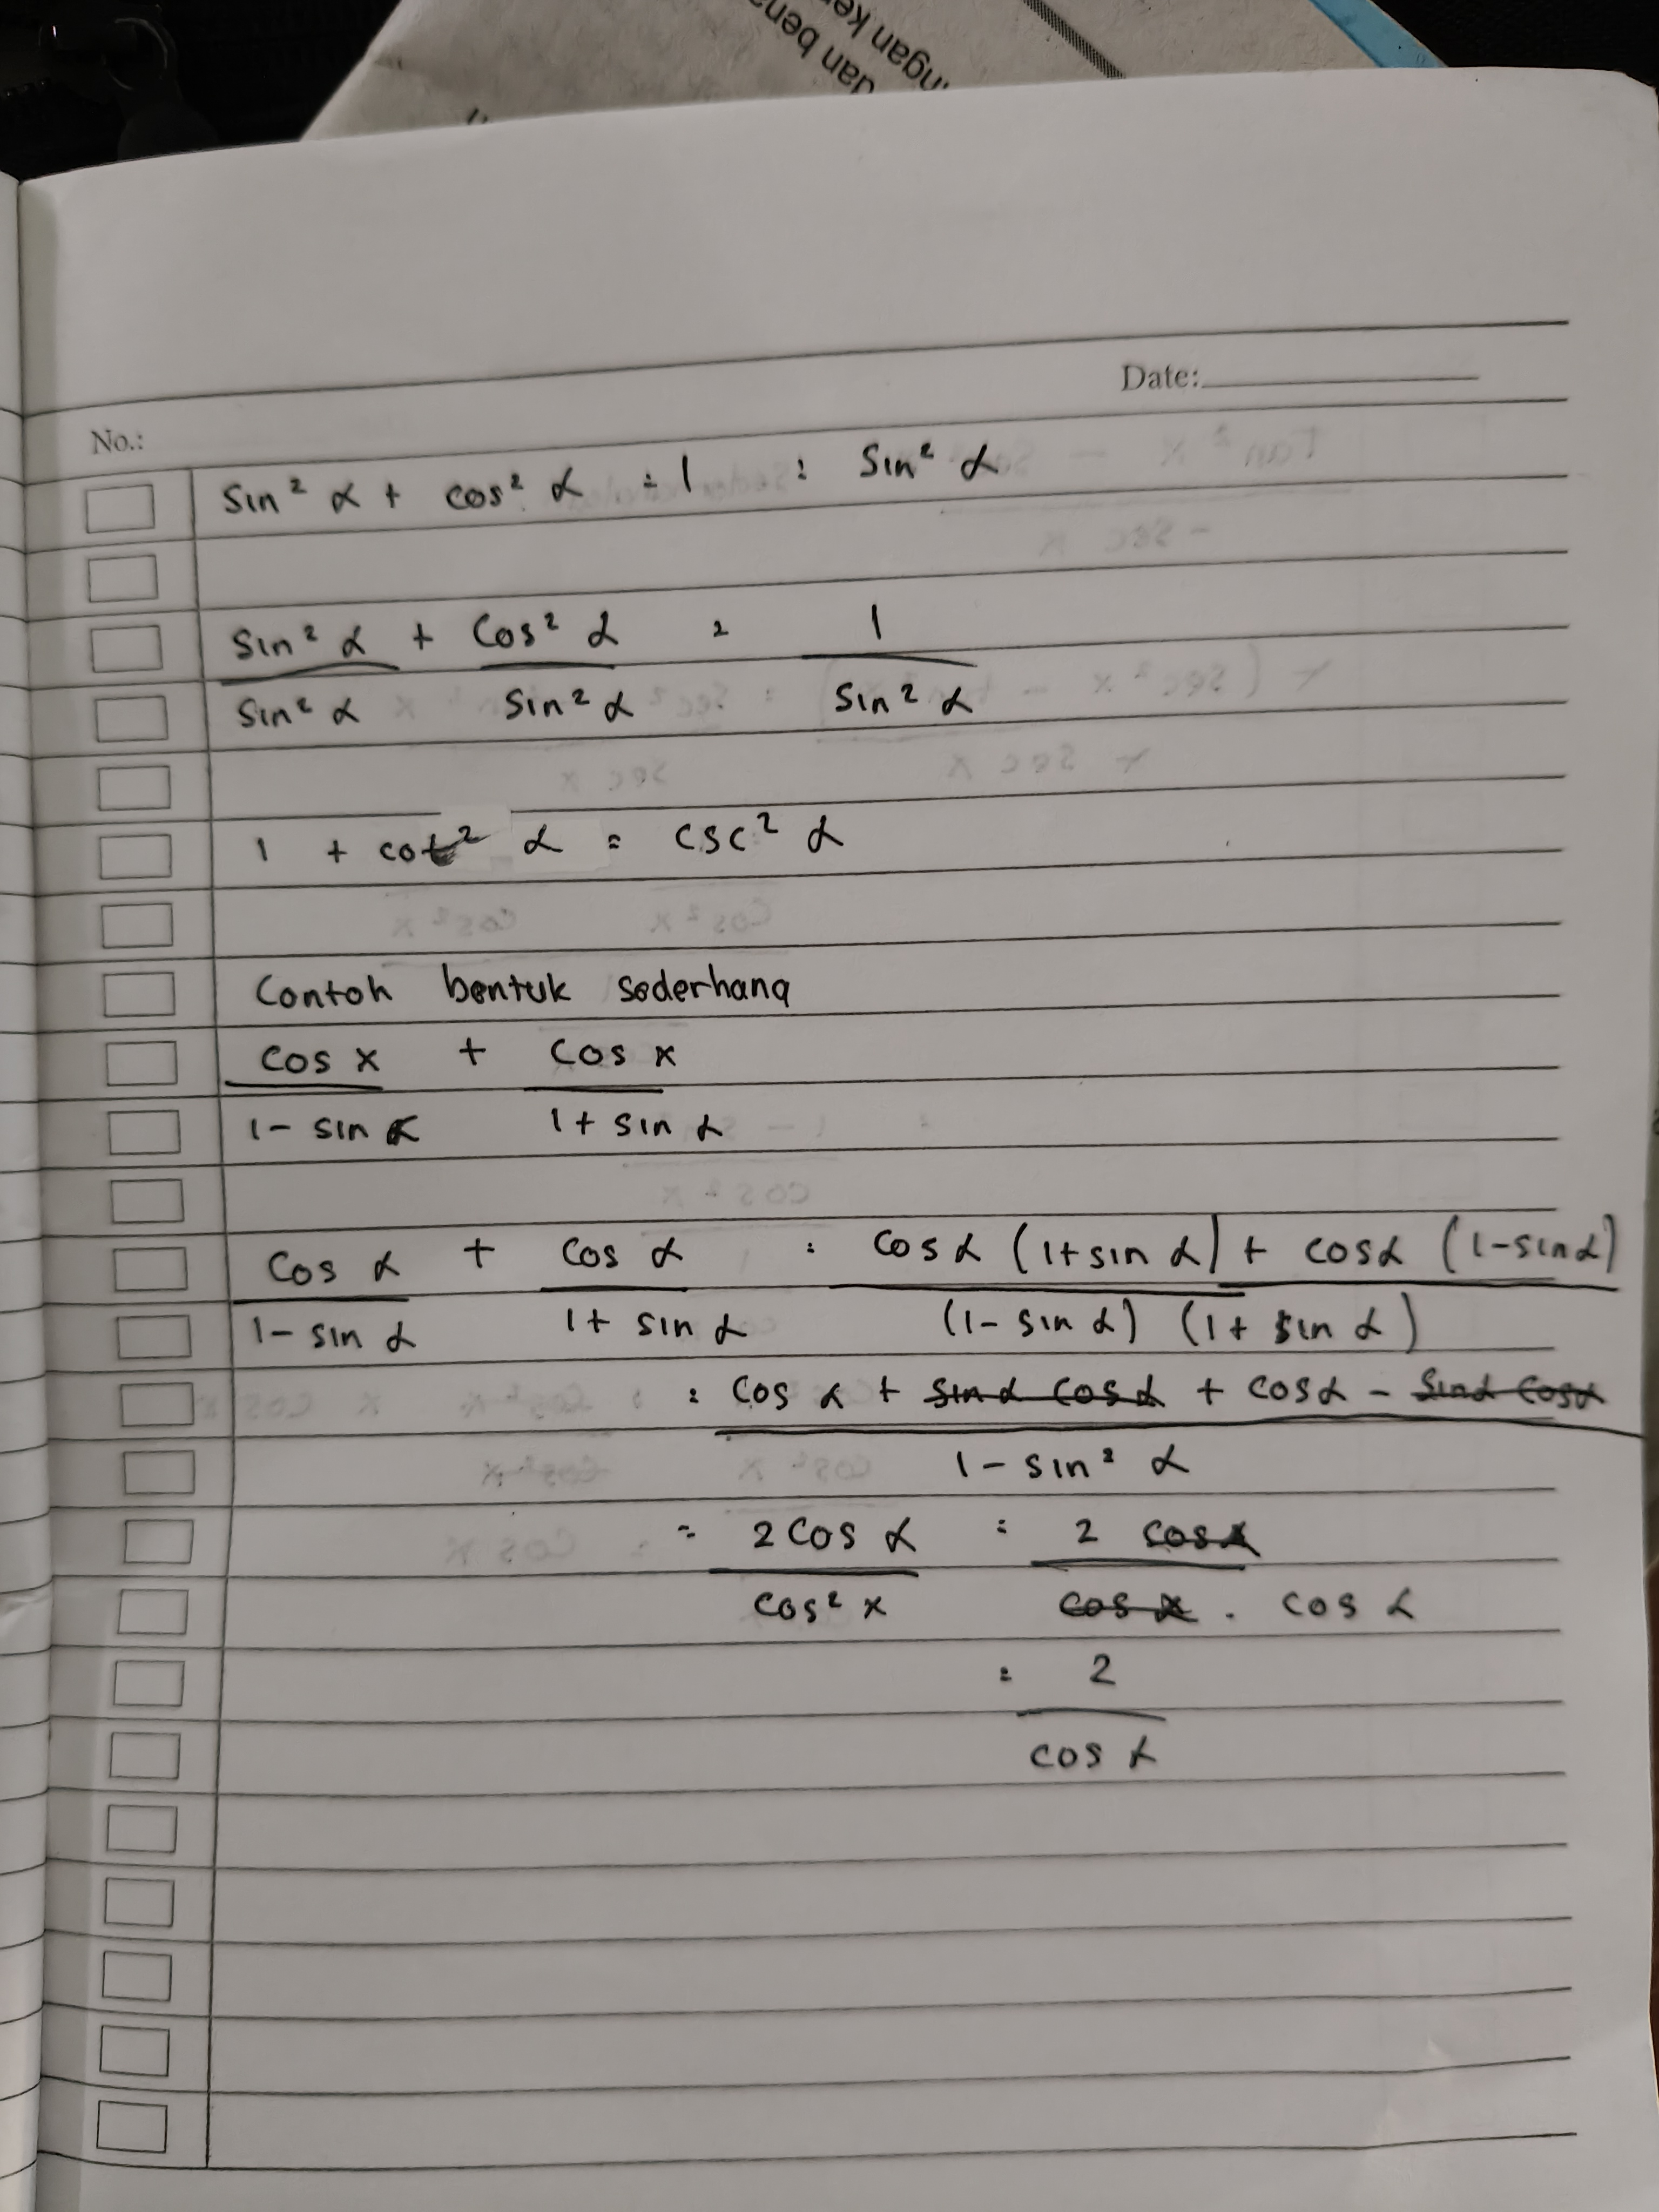 dan bena
ngan ke
Date:
No.:
Sin² α + cos² α = 1 : Sin² α
Sin² α + Cos² α = 1
Sin² α Sin² α Sin² α
1 + cot² α = csc² α
Contoh bentuk sederhana
Cos x + Cos x
1 - sin α 1 + sin α
Cos α + Cos α = Cos α (1+sin α) + cosα (1-sinα)
1 - sin α 1 + sin α (1 - sin α) (1 + sin α)
= Cos α + sinα cosα + cosα - sinα cosα
1 - sin² α
= 2 Cos α = 2 cosα
Cos² x cos x . cos α
= 2
cos α